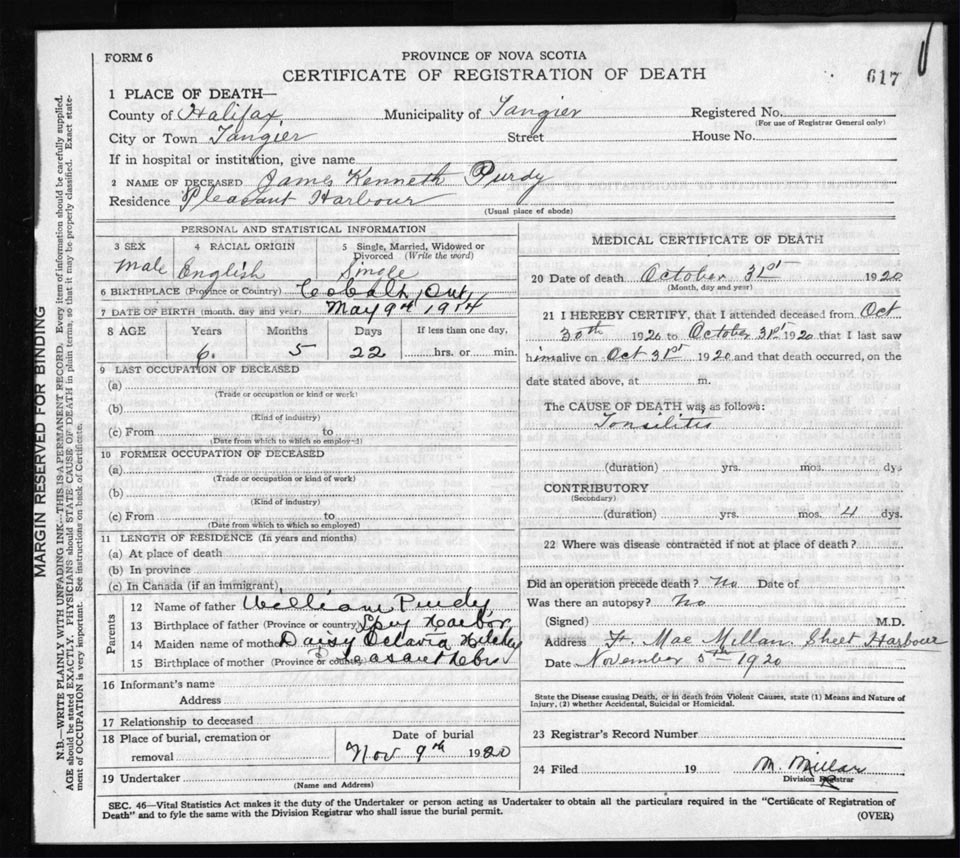 FORM 6
PROVINCE OF NOVA SCOTIA
CERTIFICATE OF REGISTRATION OF DEATH
617
1 PLACE OF DEATH—
County of Halifax, Municipality of Tangier Registered No.
(For use of Registrar General only)
City or Town Tangier Street House No.
If in hospital or institution, give name
2 NAME OF DECEASED James Kenneth Purdy
Residence Pleasant Harbour
(Usual place of abode)
PERSONAL AND STATISTICAL INFORMATION
3 SEX 4 RACIAL ORIGIN 5 Single, Married, Widowed or Divorced (Write the word)
Male English Single
6 BIRTHPLACE (Province or Country) Cobalt, Ont.
7 DATE OF BIRTH (month, day and year) May 9th 1914
8 AGE Years Months Days If less than one day,
6 5 22 hrs. or min.
9 LAST OCCUPATION OF DECEASED
(a)
(Trade or occupation or kind or work)
(b)
(Kind of industry)
(c) From to
(Date from which to which so employed)
10 FORMER OCCUPATION OF DECEASED
(a)
(Trade or occupation or kind of work)
(b)
(Kind of industry)
(c) From to
(Date from which to which so employed)
11 LENGTH OF RESIDENCE (In years and months)
(a) At place of death
(b) In province
(c) In Canada (if an immigrant)
Parents
12 Name of father William Purdy
13 Birthplace of father (Province or country) Spry Harbor
14 Maiden name of mother Daisy Octavia
15 Birthplace of mother (Province or country) Pleasant Hbr
16 Informant's name
Address
17 Relationship to deceased
18 Place of burial, cremation or removal Date of burial
Nov 9th 1920
19 Undertaker
(Name and Address)
MEDICAL CERTIFICATE OF DEATH
20 Date of death October 31st 1920
(Month, day and year)
21 I HEREBY CERTIFY, that I attended deceased from Oct
30th 1920 to October 31st 1920 that I last saw
him alive on Oct 31st 1920 and that death occurred, on the
date stated above, at m.
The CAUSE OF DEATH was as follows:
Tonsilitis
(duration) yrs. mos. dys
CONTRIBUTORY
(Secondary)
(duration) yrs. mos. 4 dys.
22 Where was disease contracted if not at place of death?
Did an operation precede death? No Date of
Was there an autopsy? No
(Signed) M.D.
Address F. Mac Millan Sheet Harbour
Date November 5th 1920
State the Disease causing Death, or in death from Violent Causes, state (1) Means and Nature of
Injury, (2) whether Accidental, Suicidal or Homicidal.
23 Registrar's Record Number
24 Filed 19 M. Millar
Division Registrar
SEC. 46—Vital Statistics Act makes it the duty of the Undertaker or person acting as Undertaker to obtain all the particulars required in the "Certificate of Registration of
Death" and to fyle the same with the Division Registrar who shall issue the burial permit.
(OVER)
MARGIN RESERVED FOR BINDING
N.B.—WRITE PLAINLY WITH UNFADING INK—THIS IS A PERMANENT RECORD. Every item of information should be carefully supplied.
AGE should be stated EXACTLY. PHYSICIANS should STATE CAUSE OF DEATH in plain terms, so that it may be properly classified. Exact statement of OCCUPATION is very important. See instructions on back of Certificate.